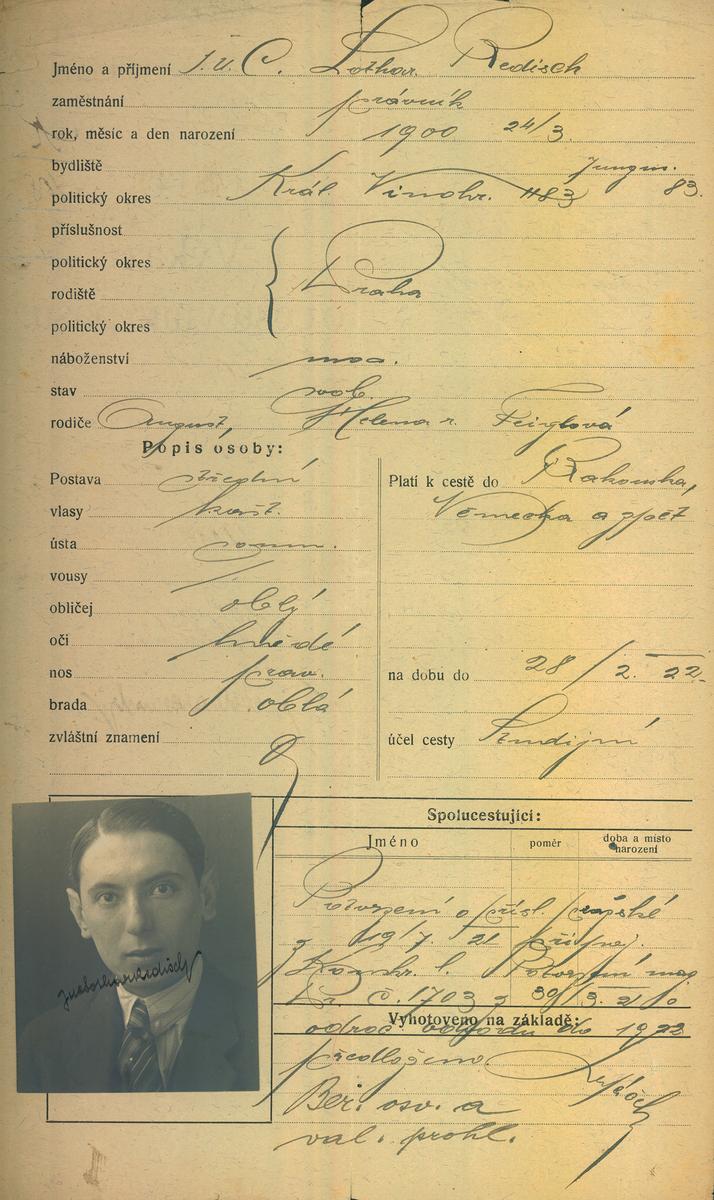 Jméno a příjmení J.U.C. Lothar Redisch
zaměstnání právník
rok, měsíc a den narození 1900 24/3.
bydliště Jungm.
politický okres Král. Vinohr. 1183 83.
příslušnost
politický okres
rodiště Praha
politický okres
náboženství mos.
stav svob.
rodiče August, Helena r. Feiglová
Popis osoby:
Postava střední
vlasy kašt.
ústa soum.
vousy /
obličej oblý
oči hnědé
nos prav.
brada oblá
zvláštní znamení
Platí k cestě do Rakouska,
Německa a zpět
na dobu do 28/2. 22.
účel cesty Studijní
Spolucestující:
Jméno poměr doba a místo
narození
Potvrzení o přísl. pražské
z 19/7 21
Konskr. l. Potvrzení mag.
č. 1703 z 30/3. 21 o
Vyhotoveno na základě:
odroč. odvodu do 1922
předloženo.
Ber. osv. a
val. prohl.